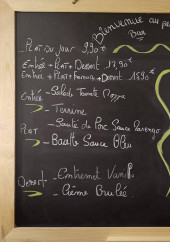 Bienvenue au pe
Bar
- Plat du Jour 9,90€
Entrée + Plat + Dessert 17,90€
Entrée + Plat + Fromage + Dessert 18,90€
Entrée - Salade Tomate Mozza
- Terrine
Plat - Sauté de Porc Sauce
- Bavette Sauce Bleu
Dessert - Entremet Vanille
- Crème Brulée